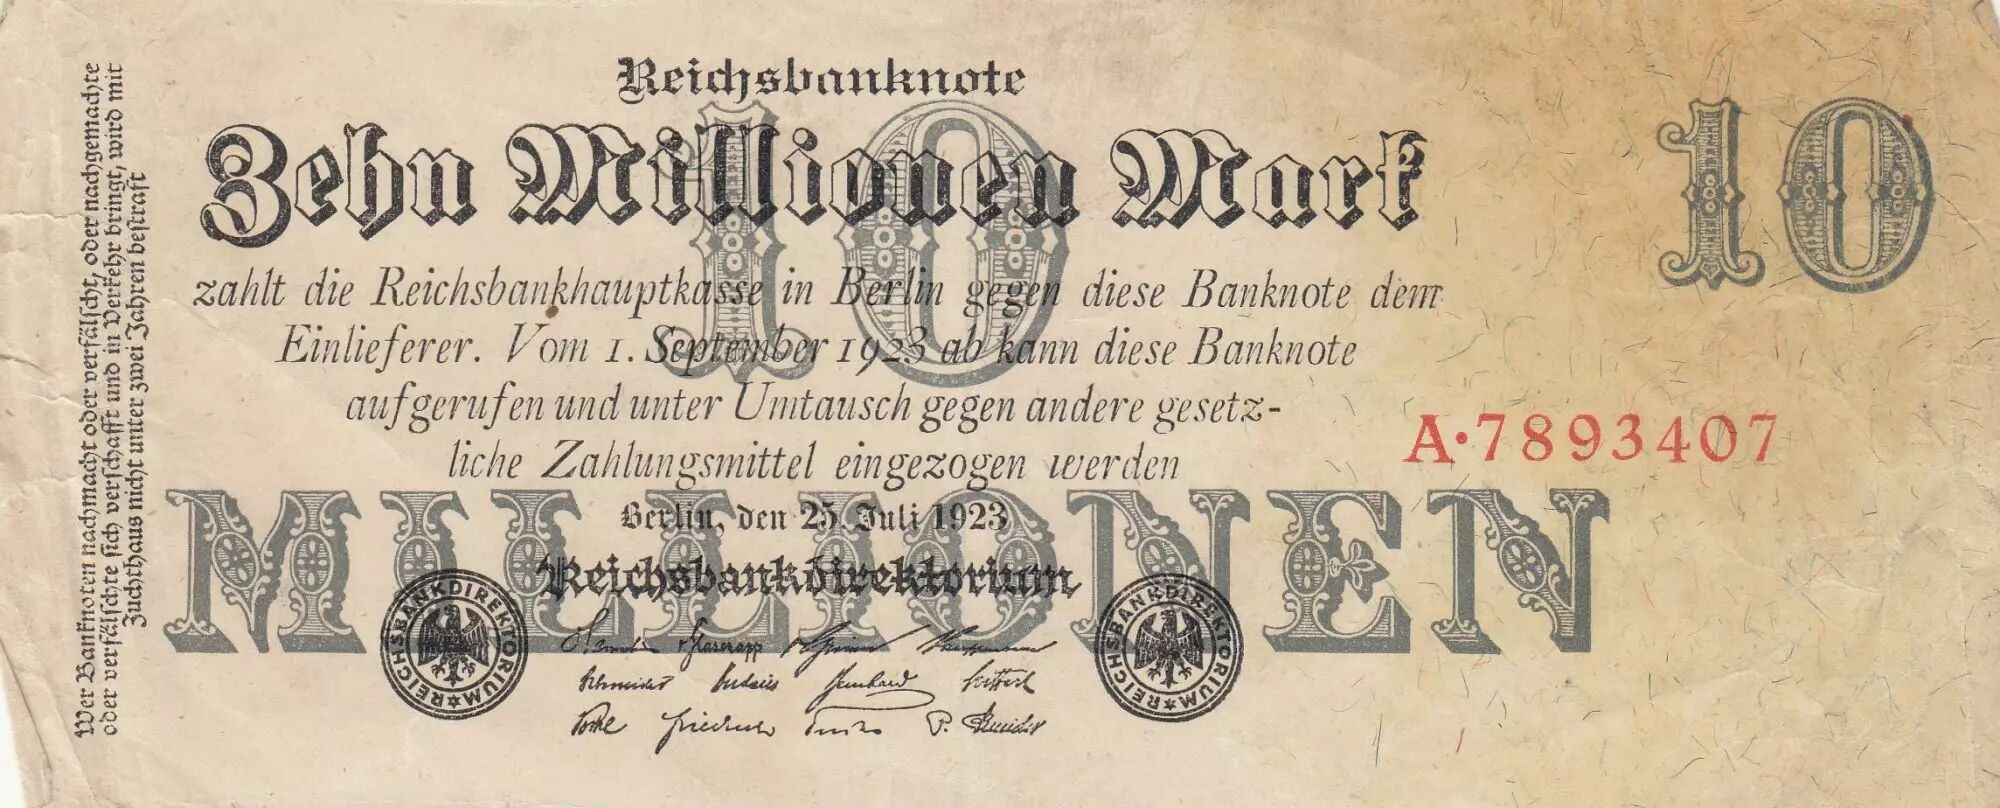 Reichsbanknote
Zehn Millionen Mark
10
10
zahlt die Reichsbankhauptkasse in Berlin gegen diese Banknote dem
Einlieferer. Vom 1. September 1923 ab kann diese Banknote
aufgerufen und unter Umtausch gegen andere gesetz-
liche Zahlungsmittel eingezogen werden
A·7893407
MILLIONEN
Berlin, den 25. Juli 1923
Reichsbankdirektorium
REICHSBANKDIREKTORIUM
REICHSBANKDIREKTORIUM
v. Grimm Kauffmann
Schneider Budczies Bernhard Seiffert
Vocke Friedrich Fuchs P. Schneider
Wer Banknoten nachmacht oder verfälscht, oder nachgemachte
oder verfälschte sich verschafft und in Verkehr bringt, wird mit
Zuchthaus nicht unter zwei Jahren bestraft